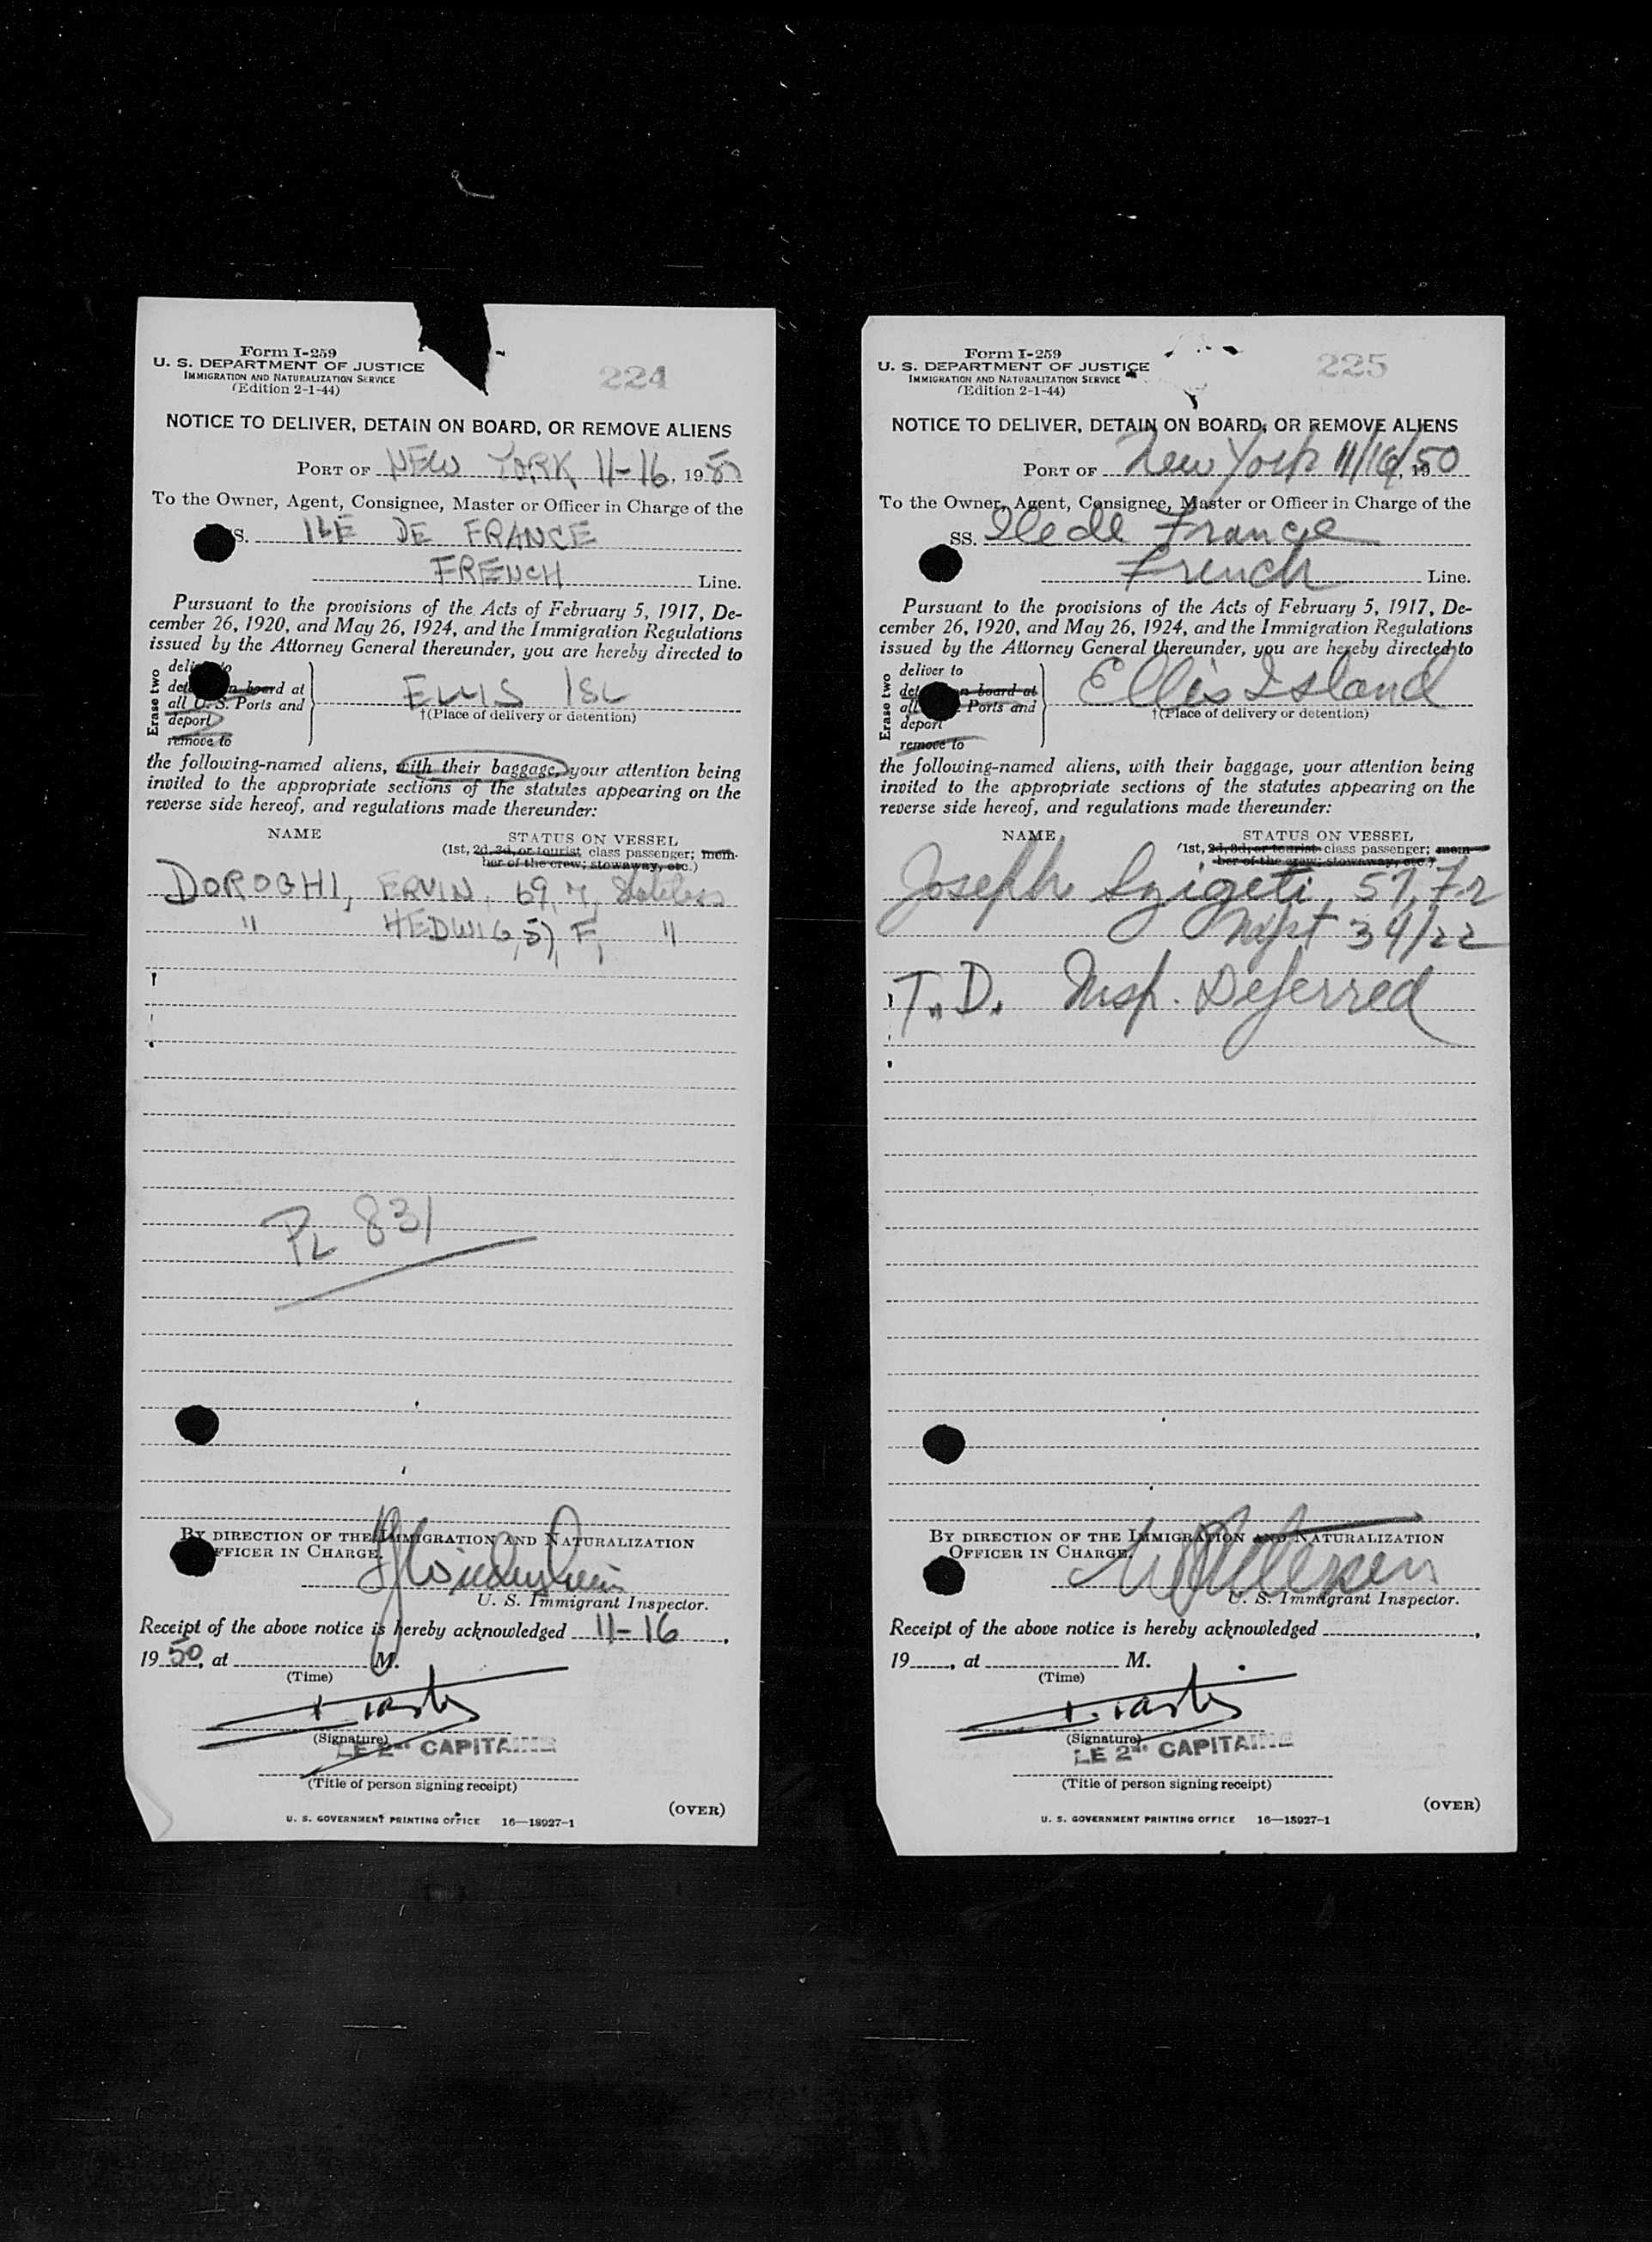 Form I-259
U. S. DEPARTMENT OF JUSTICE
IMMIGRATION AND NATURALIZATION SERVICE
(Edition 2-1-44)
224
NOTICE TO DELIVER, DETAIN ON BOARD, OR REMOVE ALIENS
PORT OF NEW YORK 11-16, 1950
To the Owner, Agent, Consignee, Master or Officer in Charge of the
S. ILE DE FRANCE
FRENCH Line.
Pursuant to the provisions of the Acts of February 5, 1917, De-
cember 26, 1920, and May 26, 1924, and the Immigration Regulations
issued by the Attorney General thereunder, you are hereby directed to
Erase two
deliver to
detain on board at
all U. S. Ports and
deport
remove to
ELLIS ISL
†(Place of delivery or detention)
the following-named aliens, with their baggage, your attention being
invited to the appropriate sections of the statutes appearing on the
reverse side hereof, and regulations made thereunder:
NAME STATUS ON VESSEL
(1st, 2d, 3d, or tourist class passenger; mem-
ber of the crew; stowaway, etc.)
DOROGHI, ERVIN, 59, M, Stateless
" HEDWIG, F, "
PL 831
BY DIRECTION OF THE IMMIGRATION AND NATURALIZATION
OFFICER IN CHARGE.
U. S. Immigrant Inspector.
Receipt of the above notice is hereby acknowledged 11-16,
1950, at M.
(Time)
(Signature)
LE 2nd CAPITAINE
(Title of person signing receipt)
(OVER)
U. S. GOVERNMENT PRINTING OFFICE 16—18927-1
Form I-259
U. S. DEPARTMENT OF JUSTICE
IMMIGRATION AND NATURALIZATION SERVICE
(Edition 2-1-44)
225
NOTICE TO DELIVER, DETAIN ON BOARD, OR REMOVE ALIENS
PORT OF New York 11/16, 1950
To the Owner, Agent, Consignee, Master or Officer in Charge of the
SS. Ile de France
French Line.
Pursuant to the provisions of the Acts of February 5, 1917, De-
cember 26, 1920, and May 26, 1924, and the Immigration Regulations
issued by the Attorney General thereunder, you are hereby directed to
Erase two
deliver to
detain on board at
all Ports and
deport
remove to
Ellis Island
†(Place of delivery or detention)
the following-named aliens, with their baggage, your attention being
invited to the appropriate sections of the statutes appearing on the
reverse side hereof, and regulations made thereunder:
NAME STATUS ON VESSEL
(1st, 2d, 3d, or tourist class passenger; mem-
ber of the crew; stowaway, etc.)
Joseph Szigeti, 57, 7-2
Mfst 34/22
T.D. Insp. Deferred
BY DIRECTION OF THE IMMIGRATION AND NATURALIZATION
OFFICER IN CHARGE.
U. S. Immigrant Inspector.
Receipt of the above notice is hereby acknowledged ,
19 , at M.
(Time)
(Signature)
LE 2nd CAPITAINE
(Title of person signing receipt)
(OVER)
U. S. GOVERNMENT PRINTING OFFICE 16—18927-1